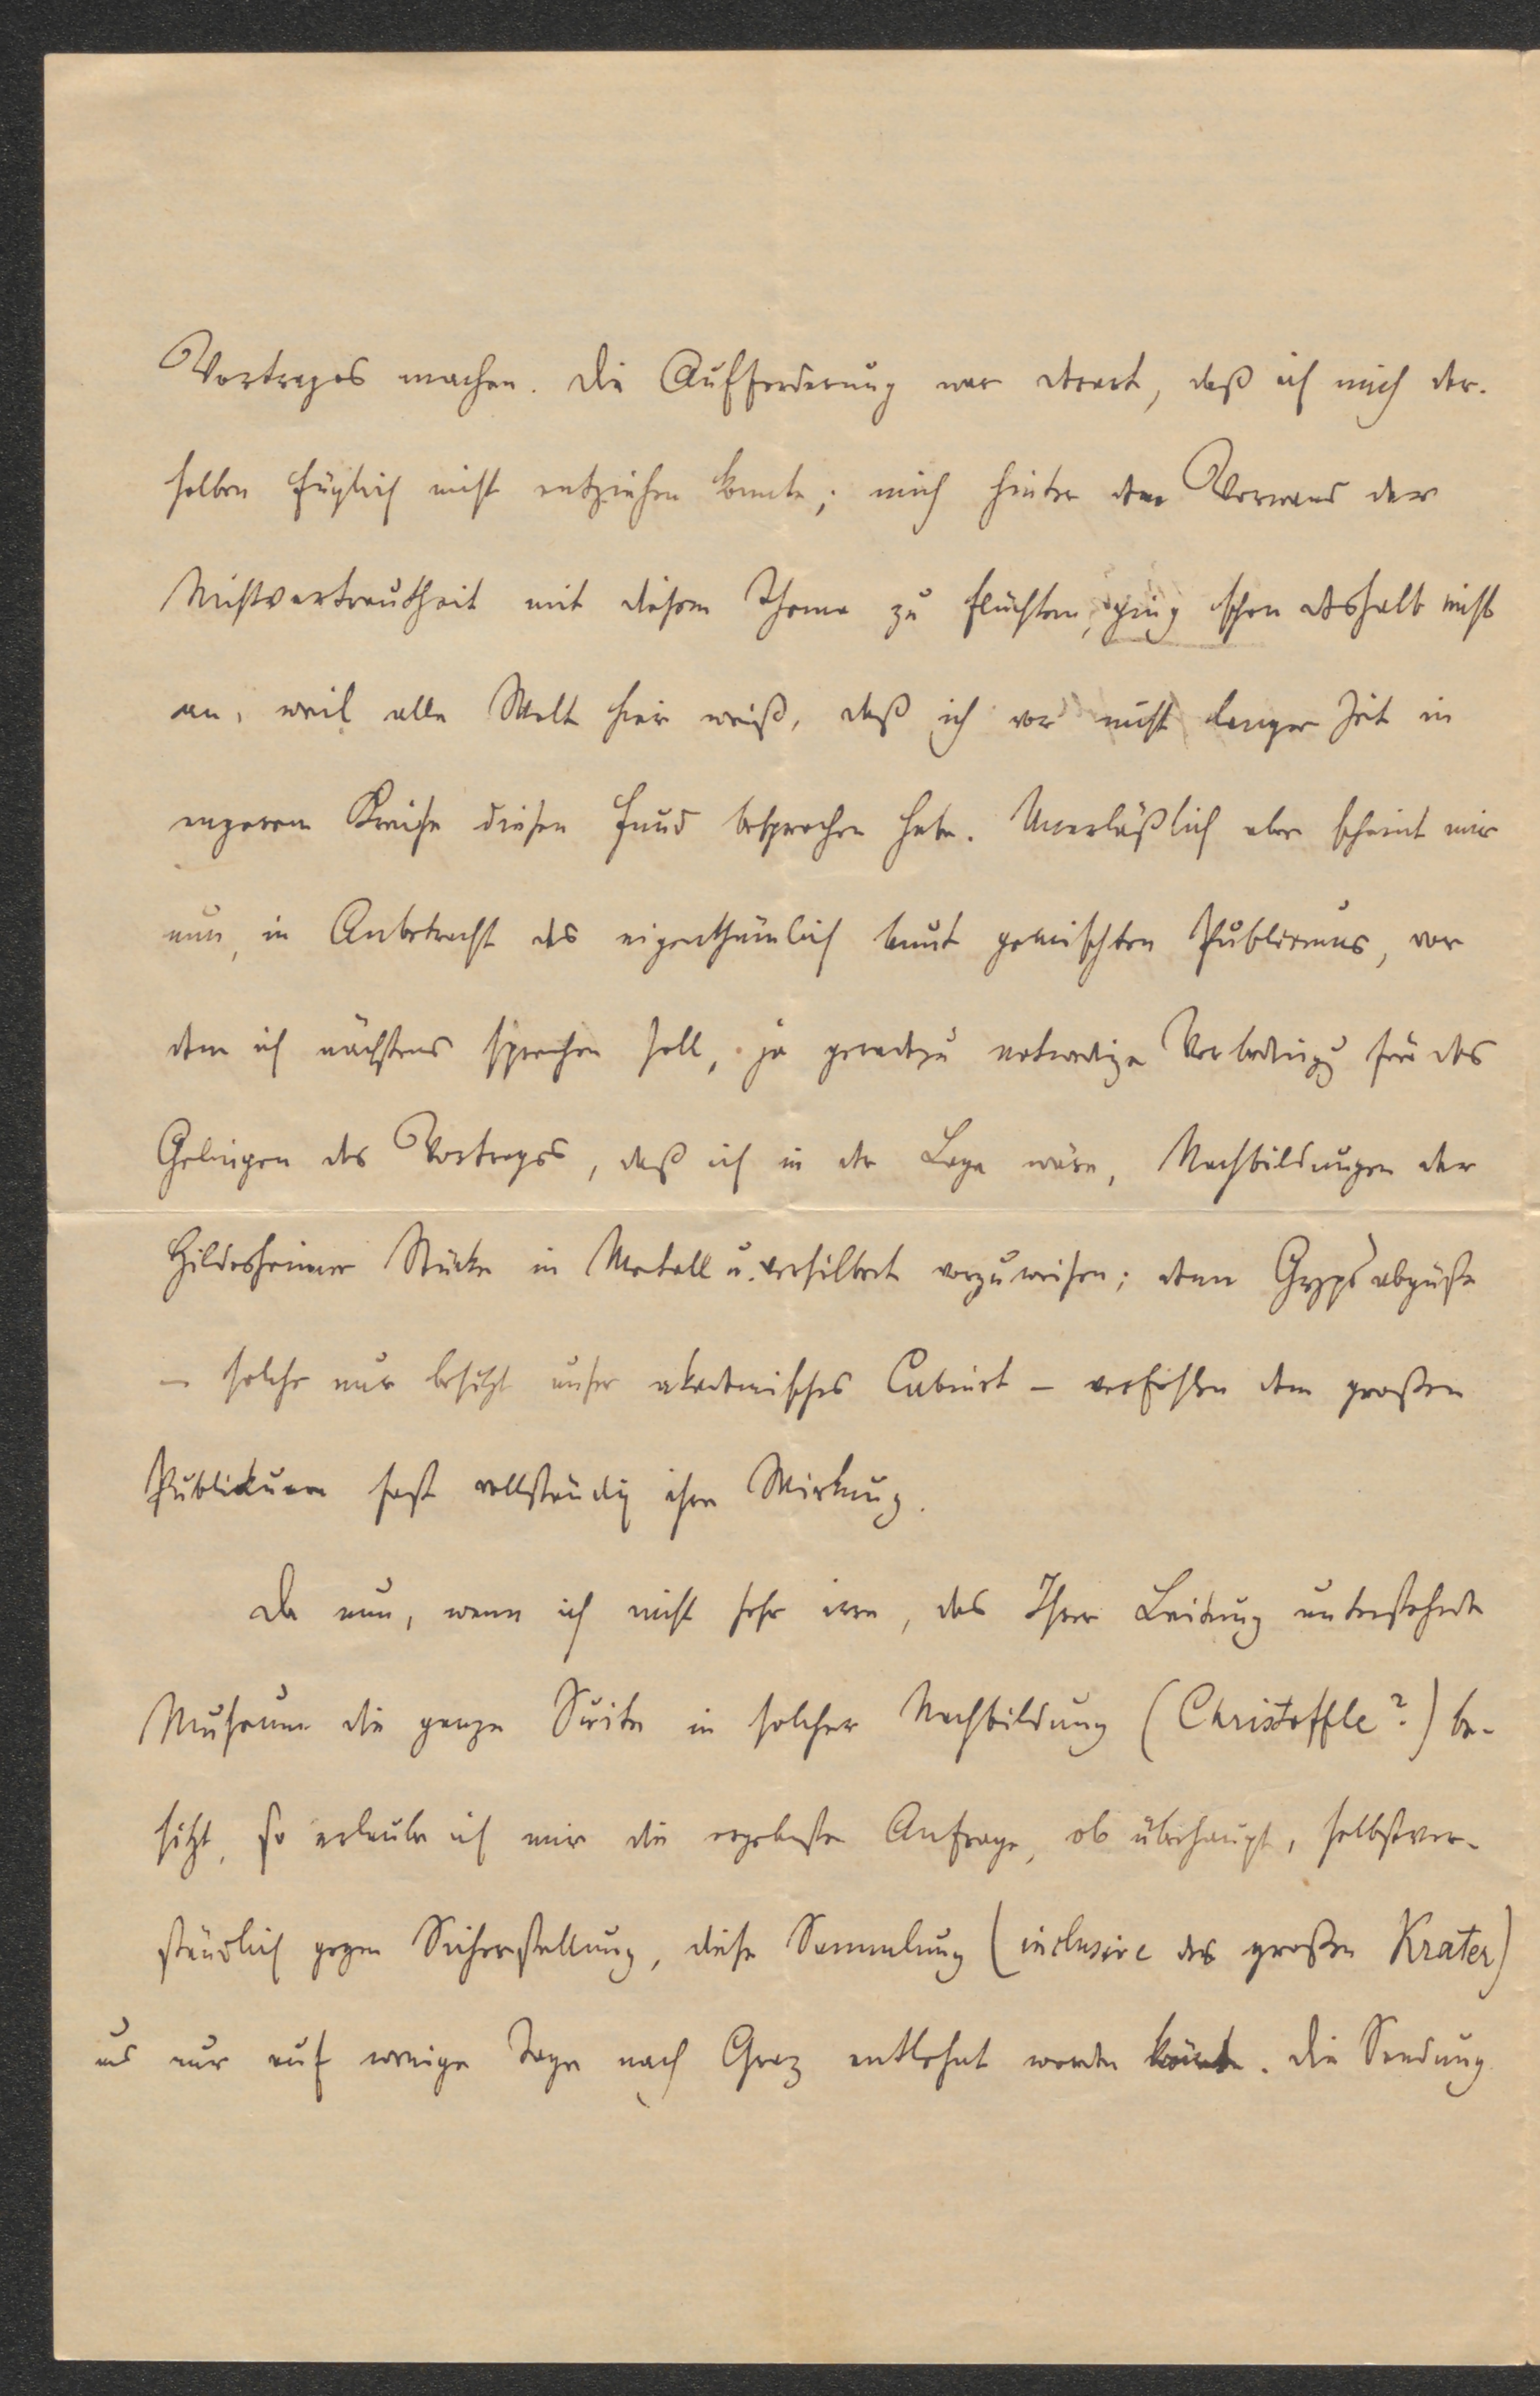 Vortrages machen. Die Aufforderung war derart, daß ich mich der-
selben füglich nicht entziehen konnte; mich hinter den Vorwand der
Nichtvertrautheit mit diesem Thema zu flüchten, ging schon deshalb nicht
an, weil alle Welt hier weiß, daß ich vor nicht langer Zeit in
engerem Kreise diesen Fund besprochen habe. Unerläßlich aber scheint mir
nun, in Anbetracht des eigenthümlich bunt gemischten Publicums, vor
dem ich nächstens sprechen soll, ja geradezu notwendige Vorbedingg für das
Gelingen des Vortrages, daß ich in der Lage wäre, Nachbildungen der
Hildesheimer Stücke in Metall u. versilbert vorzuweisen; denn Gypsabgüsse
– solche nur besitzt unser akademisches Cabinet – verfehlen dem großen
Publikum fast vollständig ihre Wirkung.
Da nun, wenn ich nicht sehr irre, das Ihrer Leitung unterstehende
Museum die ganze Suite in solcher Nachbildung (Christoffle?) be-
sitzt, so erlaube ich mir die ergebenste Anfrage, ob überhaupt, selbstver-
ständlich gegen Sicherstellung, diese Sammlung (inclusive des großen Krater)
und nur auf wenige Tage nach Graz entlehnt werden könnte. Die Sendung